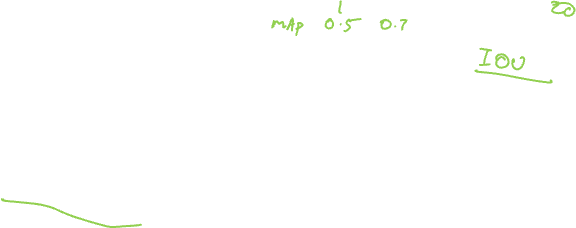 mAp 0.5 0.7
IOU